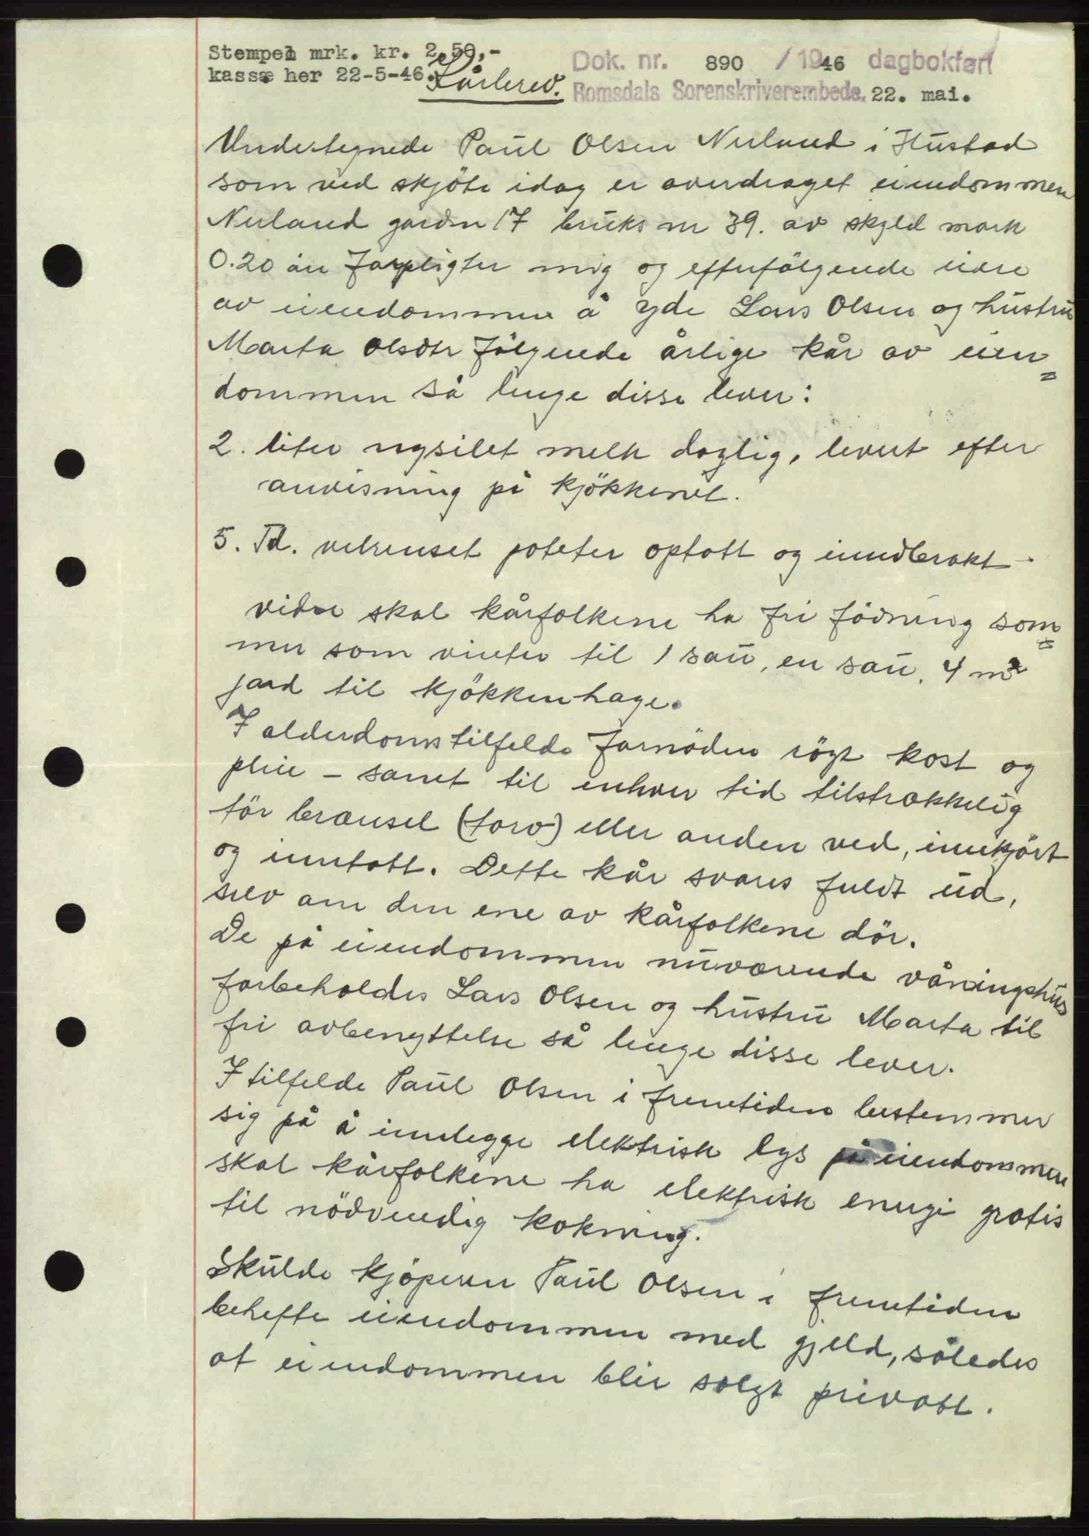 Stempel mrk. kr. 2,50,-
kasse her 22-5-46.
Dok. nr. 890 / 1946 dagbokført
Romsdals Sorenskriverembede. 22. mai.
Kårbrev.
Undertegnede Paul Olsen Nerland i Hustad
som ved skjöte idag er overdraget eiendommen
Nerland gardsn 17 bruks nr 39. av skyld mark
0.20 öre forpligter mig og efterfölgende eiere
av eiendommen å yde Lars Olsen og hustru
Marta Olsdtr fölgende årlige kår av eien=
dommen så lenge disse lever:
2. liter nysilet melk daglig, levert efter
anvisning på kjökkenet.
5. Td. velrenset poteter optatt og inndbrakt
vider skal kårfolkene ha fri födning som=
mer som vinter til 1 sau, en sau. 4 m²
jord til kjökkenhage.
I alderdomstilfelde fornöden rögt kost og
pleie – samt til enhver tid tilstrækkelig
tör brænsel (torv) eller anden ved, innkjört
og inntatt. Dette kår svares fuldt ud,
selv om den ene av kårfolkene dör.
De på eiendommen nuværende våningshus
forbeholdes Lars Olsen og hustru Marta til
fri avbenyttelse så lenge disse lever.
I tilfelde Paul Olsen i fremtiden bestemmer
sig på å innlegge elektrisk lys på eiendommen
skal kårfolkene ha elektrisk energi gratis
til nödvendig kokning.
Skulde kjöperen Paul Olsen i fremtiden
behefte eiendommen med gjeld, således
at eiendommen blir solgt privatt.